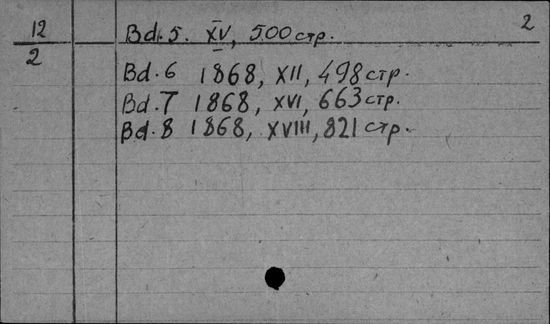 12
2
2
Bd. 5. XV, 500 стр.
Bd. 6 1868, XII, 498 стр.
Bd. 7 1868, XVI, 663 стр.
Bd. 8 1868, XVIII, 821 стр.